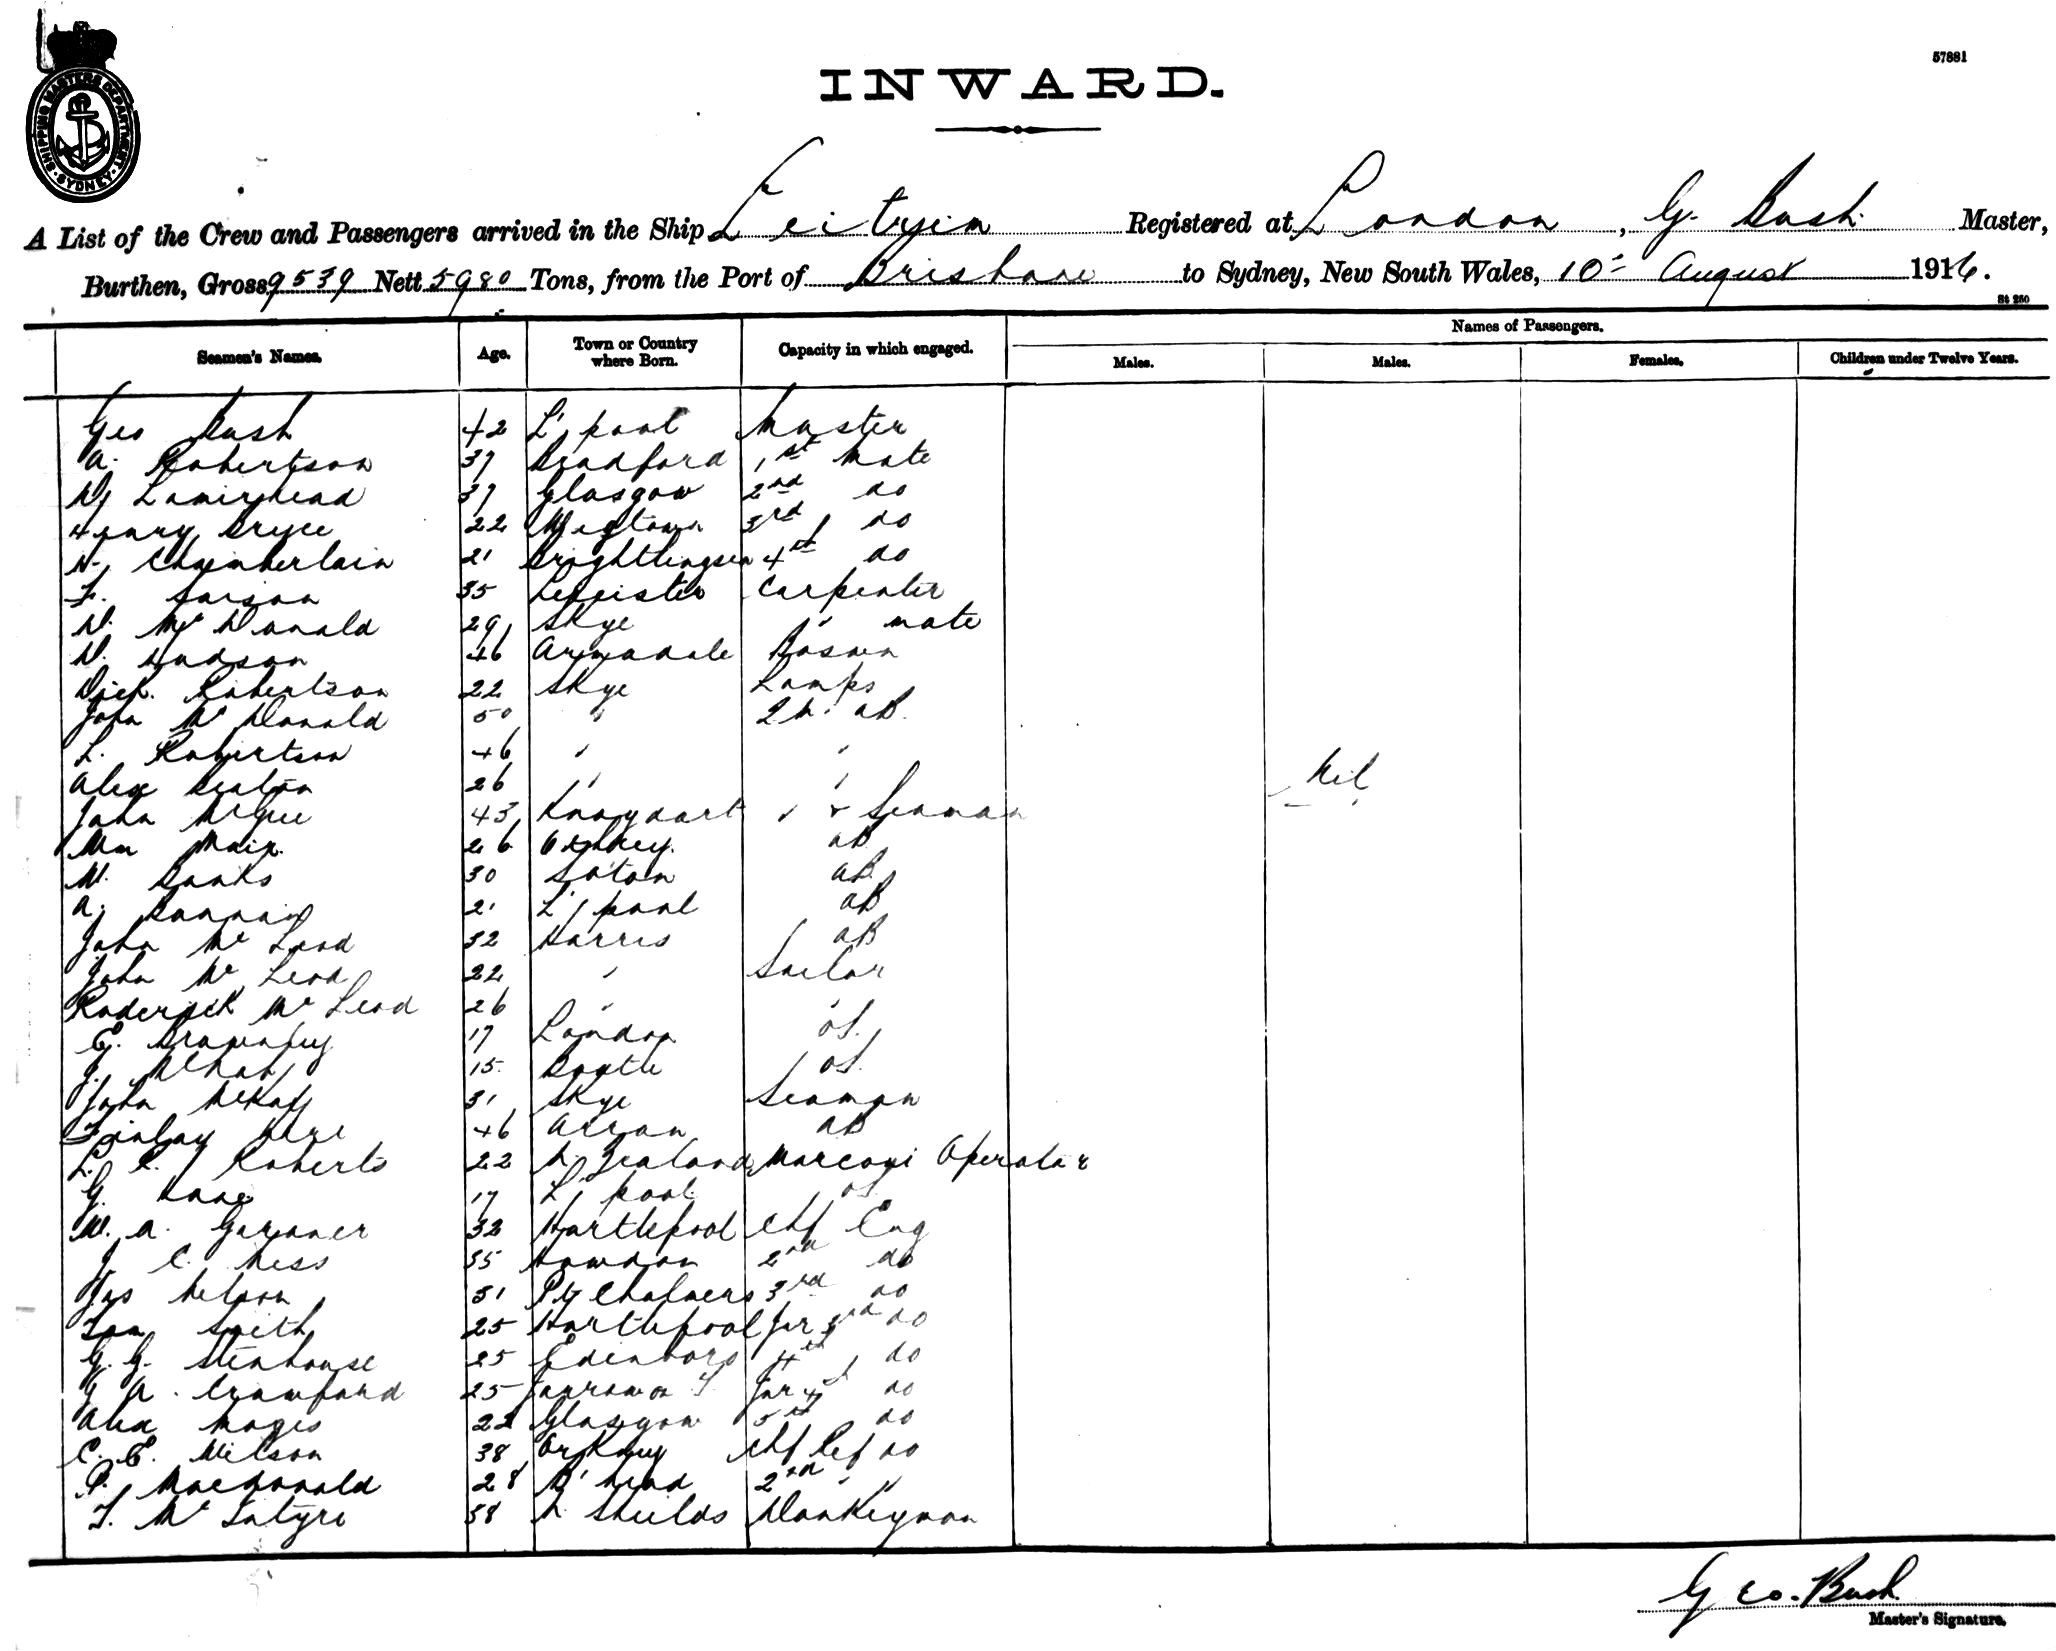 57881
INWARD.
SHIPPING MASTERS DEPARTMENT. SYDNEY.
A List of the Crew and Passengers arrived in the Ship Leitrim Registered at London, G. Bush Master,
Burthen, Gross 9539 Nett 5980 Tons, from the Port of Brisbane to Sydney, New South Wales, 10th August 1916.
St 260
Names of Passengers.
Seamen's Names. Age. Town or Country where Born. Capacity in which engaged. Males. Males. Females. Children under Twelve Years.
Geo Bush 42 L'pool Master
A. Robertson 37 Bradford 1st Mate
37 Glasgow 2nd do
Henry Bryce 22 Wigtown 3rd do
H. Chamberlain 21 Brightlingsea 4th do
F. 35 Leicister Carpenter
D. McDonald 29 Skye " mate
D. Hudson 46 Armadale Bosun
Robertson 22 Skye Lamps
John McDonald 50 " AB.
L. Robertson 46 " "
Alex Beaton 26 " "
Nil
John McGee 43 Knoydart " & Seaman
Wm Mair 26 Orkney. AB
W. Banks 30 Soton AB.
A. 21 L'pool AB
John McLeod 32 Harris AB
John McLeod 22 " Sailor
Roderick McLeod 26 " "
E. 17 London OS.
J. 15 Bootle OS.
John McKay 31 Skye Seaman
Finlay Kerr 46 Arran AB
L. R. Roberts 22 N. Zealand Marconi Operator
G. 17 L'pool OS
W. A. Gardner 32 Hartlepool Chf Eng
J. C. Ness 35 Howdon 2nd do
Jas Nelson 31 Pt Chalmers 3rd do
Tom Smith 25 Hartlepool Jnr 3rd do
G. G. Stenhouse 25 Edenboro 4th do
G A. Crawford 25 Jarrow on T Jnr 4th do
Alex 22 Glasgow 5th do
C. E. Wilson 38 Orkney Chf Ref do
P. MacDonald 28 B'head 2nd " "
T. McIntyre 38 N Shields Donkeyman
Geo. Bush
Master's Signature.